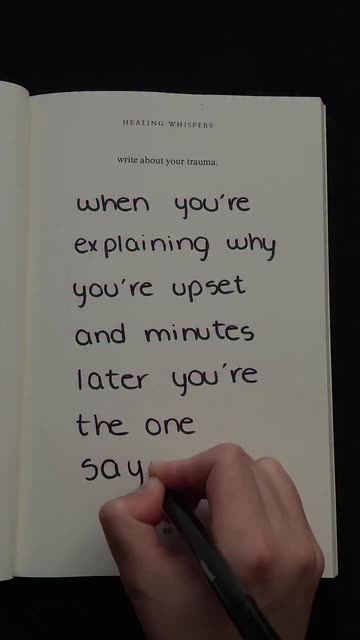 HEALING WHISPERS
write about your trauma.
when you're
explaining why
you're upset
and minutes
later you're
the one
say